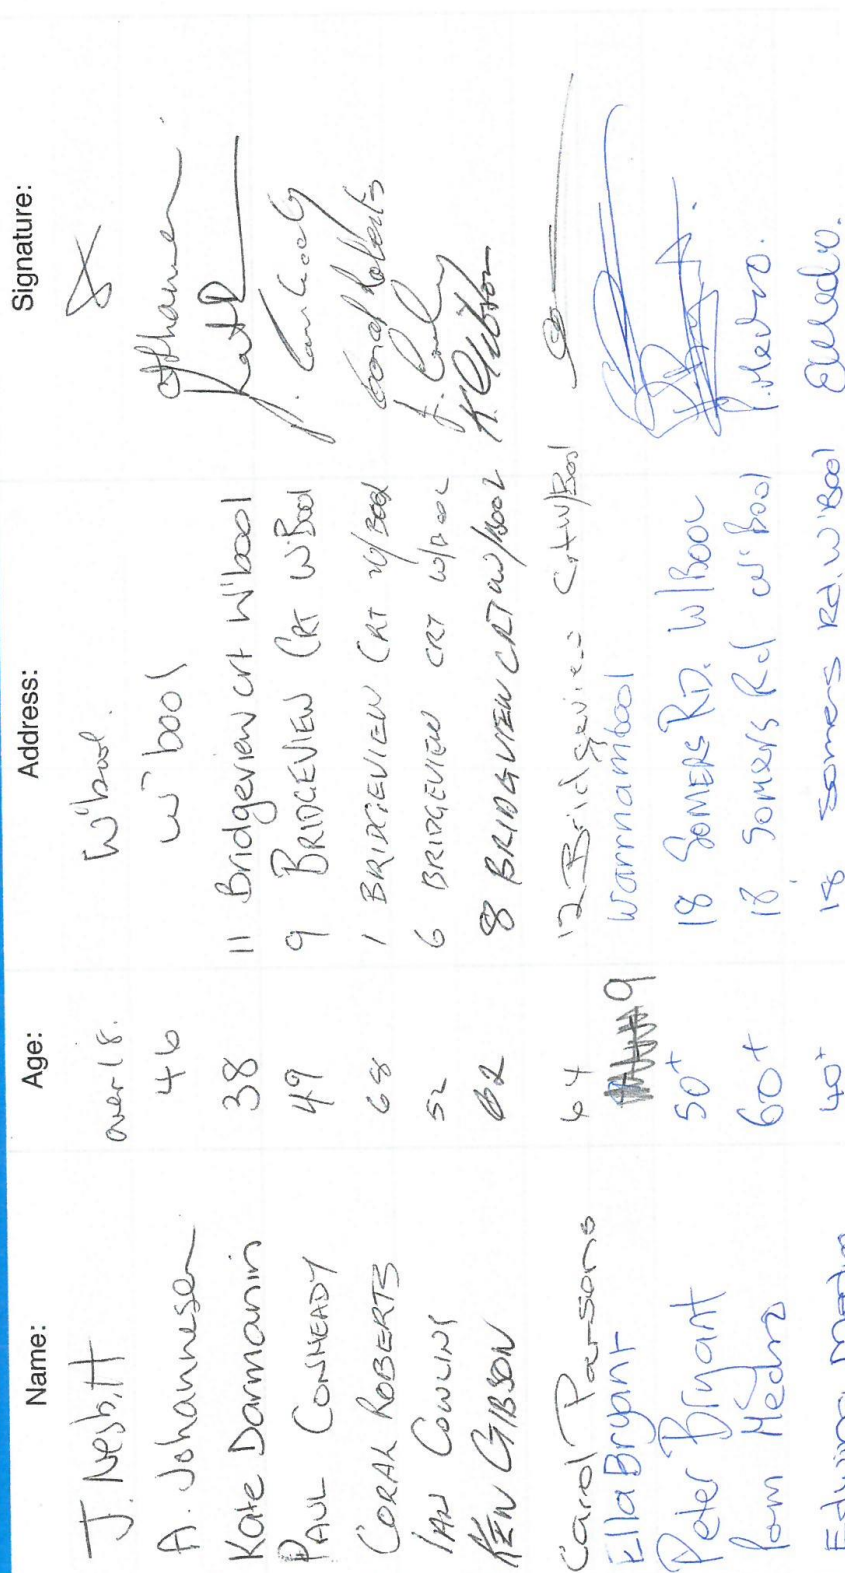 Name: Age: Address: Signature:
J. Nesbitt over 18. W'bool.
A. Johannesen 46 W'bool
Kate Darmanin 38 11 Bridgeview crt W'bool
PAUL CONHEADY 49 9 BRIDGEVIEW CRT W'Bool
CORAL ROBERTS 68 1 BRIDGEVIEW CRT W/Bool Coral Roberts
IAN COWLING 52 6 BRIDGEVIEW CRT W/BOOL
KEN GIBSON 62 8 BRIDGVIEW CRT W/BOOL K. Gibson
Carol Parsons 64 12 Bridgeview Crt W/Bool
Ella Bryant 9 Warrnambool
Peter Bryant 50+ 18 SOMERS RD. W/BOOL
Pam Medro 60+ 18 Somers Rd W'bool P. Medro.
Edwina Medro 40+ 18 Somers Rd. W'Bool EMedro.